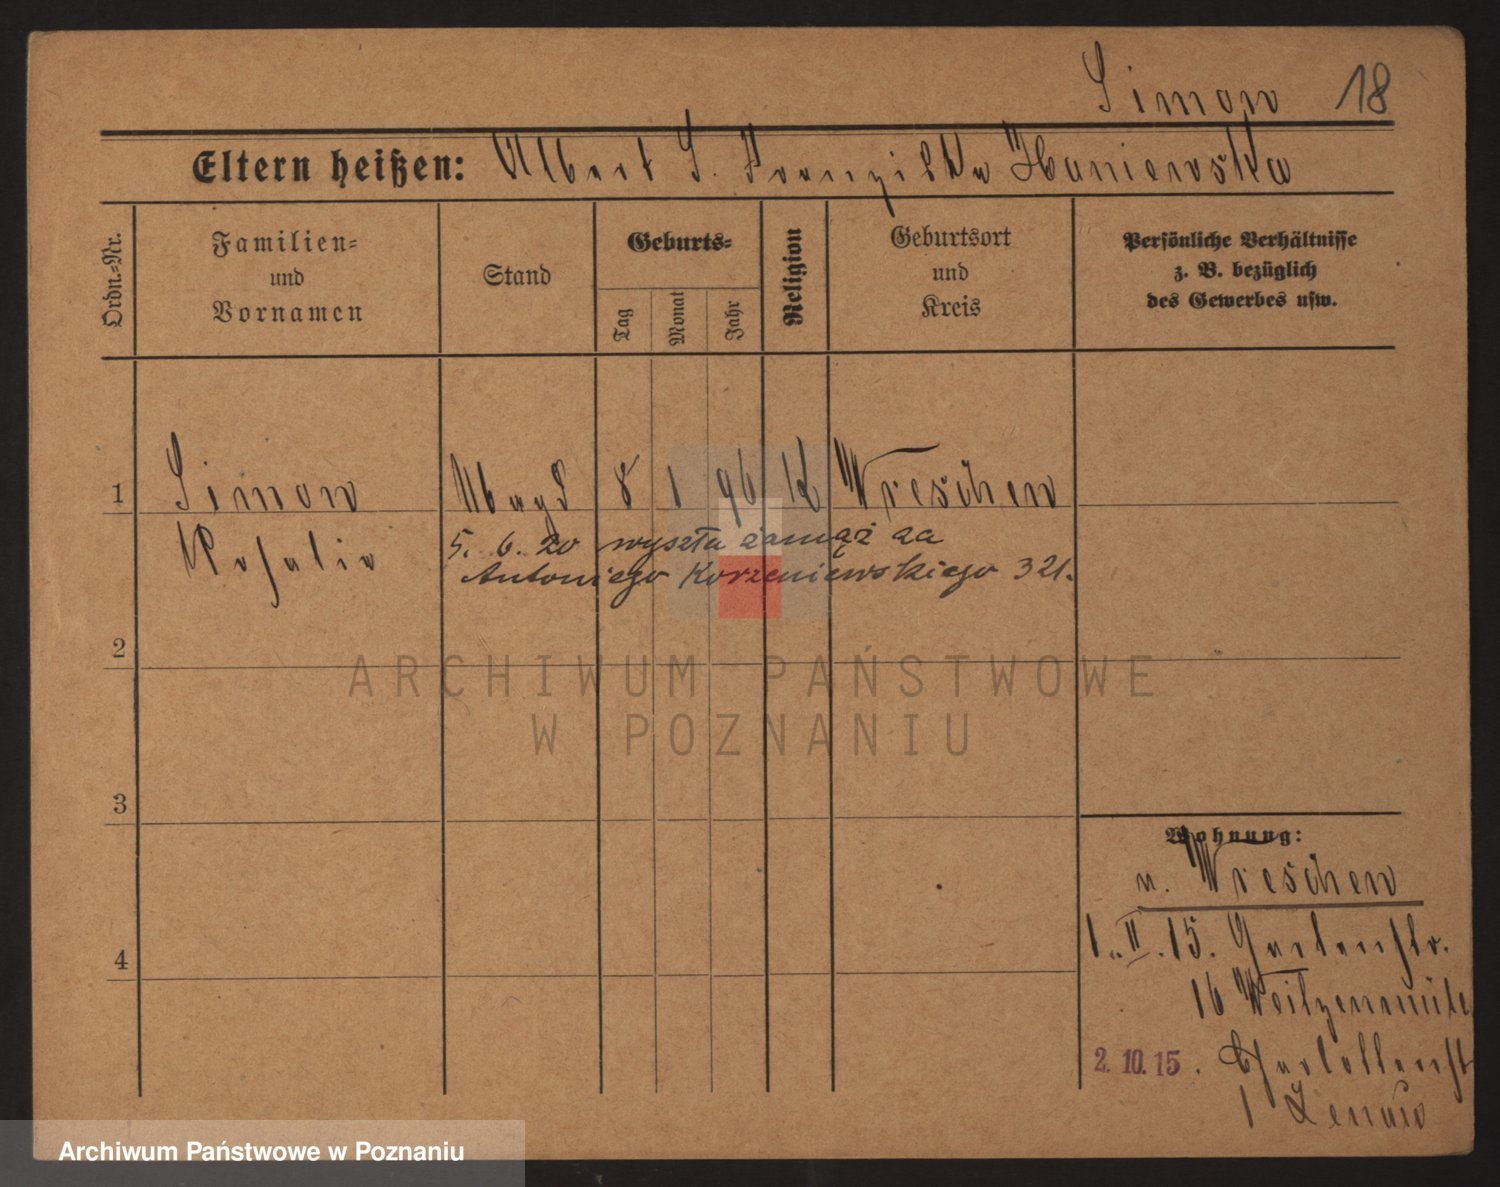 Simon 18
Eltern heißen: Albert S. Franziska Haniewska
Ordn.-Nr.
Familien-
und
Vornamen
Stand
Geburts-
Tag
Monat
Jahr
Religion
Geburtsort
und
Kreis
Persönliche Verhältnisse
z. B. bezüglich
des Gewerbes usw.
1 Simon Magd 8 1 96 K Wreschen
Rosalie 5. 6. 20 wyszła zamąż za
Antoniego Korzeniewskiego 321.
2
ARCHIWUM PAŃSTWOWE
W POZNANIU
3
Wohnung:
n. Wreschen
1. II. 15. Gartenstr.
16
4
2. 10. 15. Charlottenst
1
Archiwum Państwowe w Poznaniu